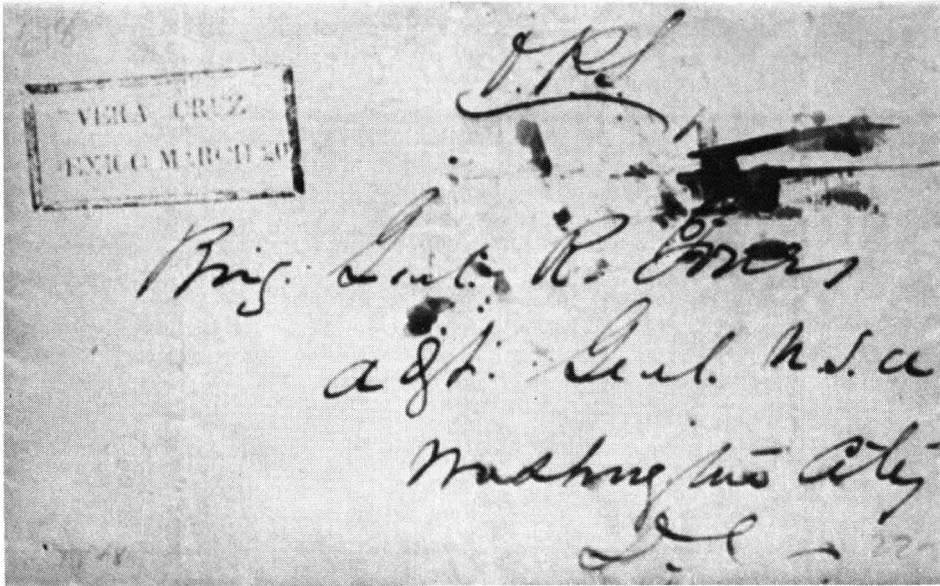 VERA CRUZ
MEXICO MARCH
Brig. Genl. R.
Adjt. Genl. U.S.A
Washington City
D.C.
22